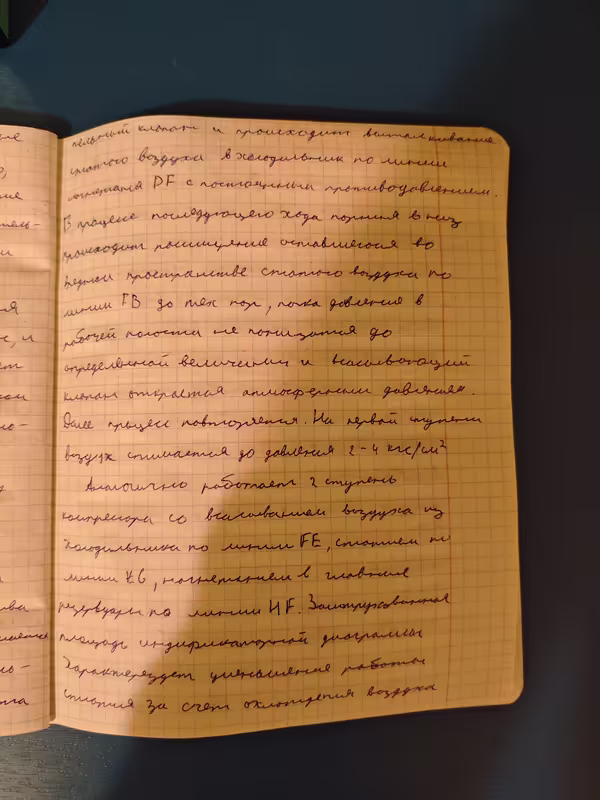 тельный клапан и происходит выталкивание
сжатого воздуха в холодильник по линии
нагнетания DF с постоянным противодавлением.
В процессе последующего хода поршня в низ
происходит расширение оставшегося во
вредном пространстве сжатого воздуха по
линии FB до тех пор, пока давление в
рабочей полости не понизится до
определённой величины и всасывающий
клапан откроется атмосферным давлением.
Далее процесс повторяется. На первой ступени
воздух сжимается до давления 2-4 кгс/см²
Аналогично работает 2 ступень
компресора со всасыванием воздуха из
холодильника по линии FE, сжатием по
линии EG, нагнетанием в главные
резервуары по линии HF. Заштрихованная
площадь индификаторной диаграммы
характерезует уменьшение работы
сжатия за счет охлождения воздуха
ие
тель-
ня
с, и
ет
но-
ва
но-
та